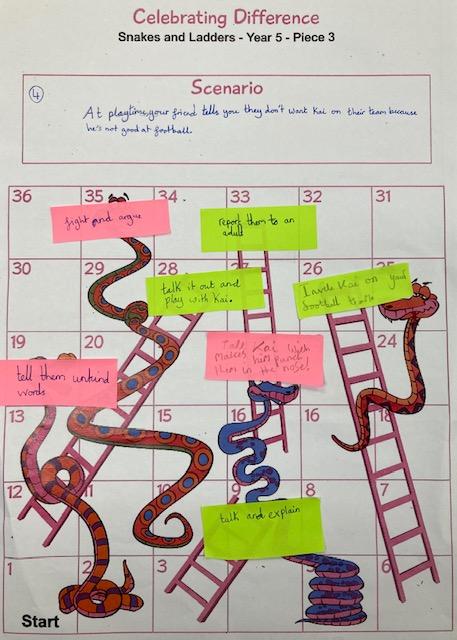 Celebrating Difference
Snakes and Ladders - Year 5 - Piece 3
Scenario
4
At playtime, your friend tells you they don't want Kai on their team because
he's not good at football.
36 35 34 33 32 31
fight and argue
report them to an
adult
30 29 28 26 25
talk it out and
play with Kai.
Invite Kai on your
football
19 20 24
Kai which
makes him punch
them in the nose!
tell them unkind
words
13 16 18
12 11 10 9 8 7
talk and explain
1 2 3 6
Start